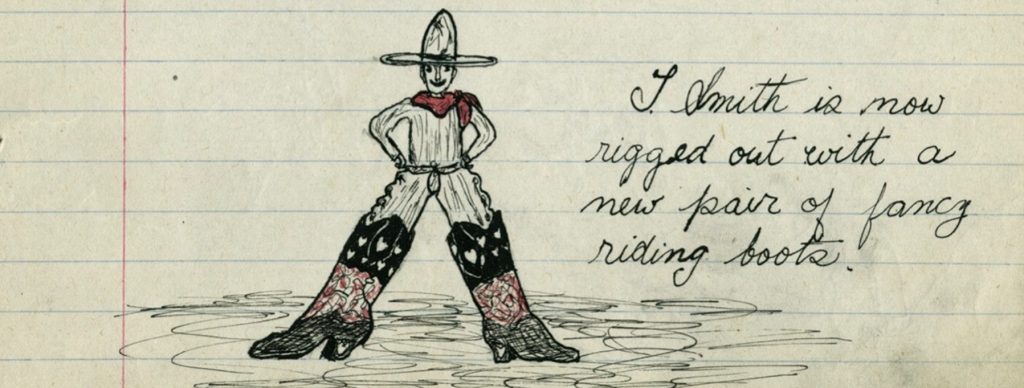 T. Smith is now
rigged out with a
new pair of fancy
riding boots.